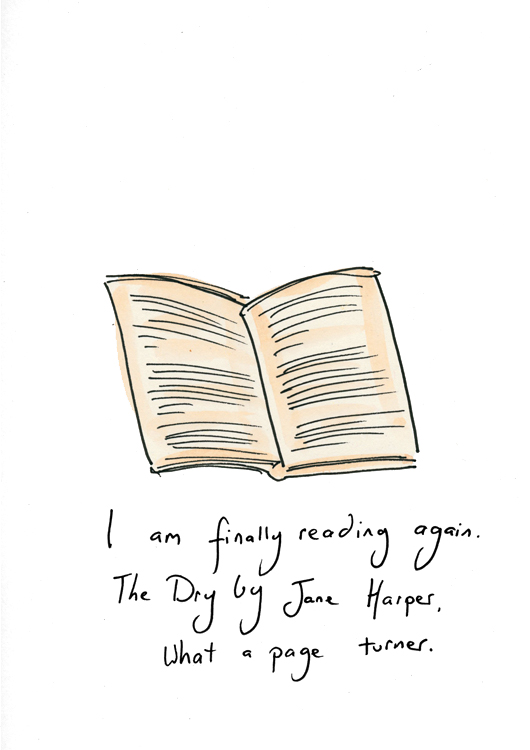 I am finally reading again.
The Dry by Jane Harper,
What a page turner.